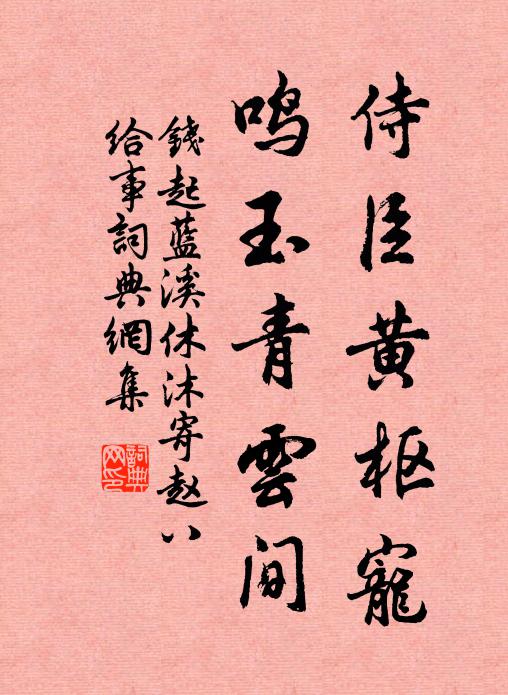 侍臣黄枢寵
鸣玉青雲间
錢起蓝溪休沐寄赵八
给事詞典網集
詞典
网印